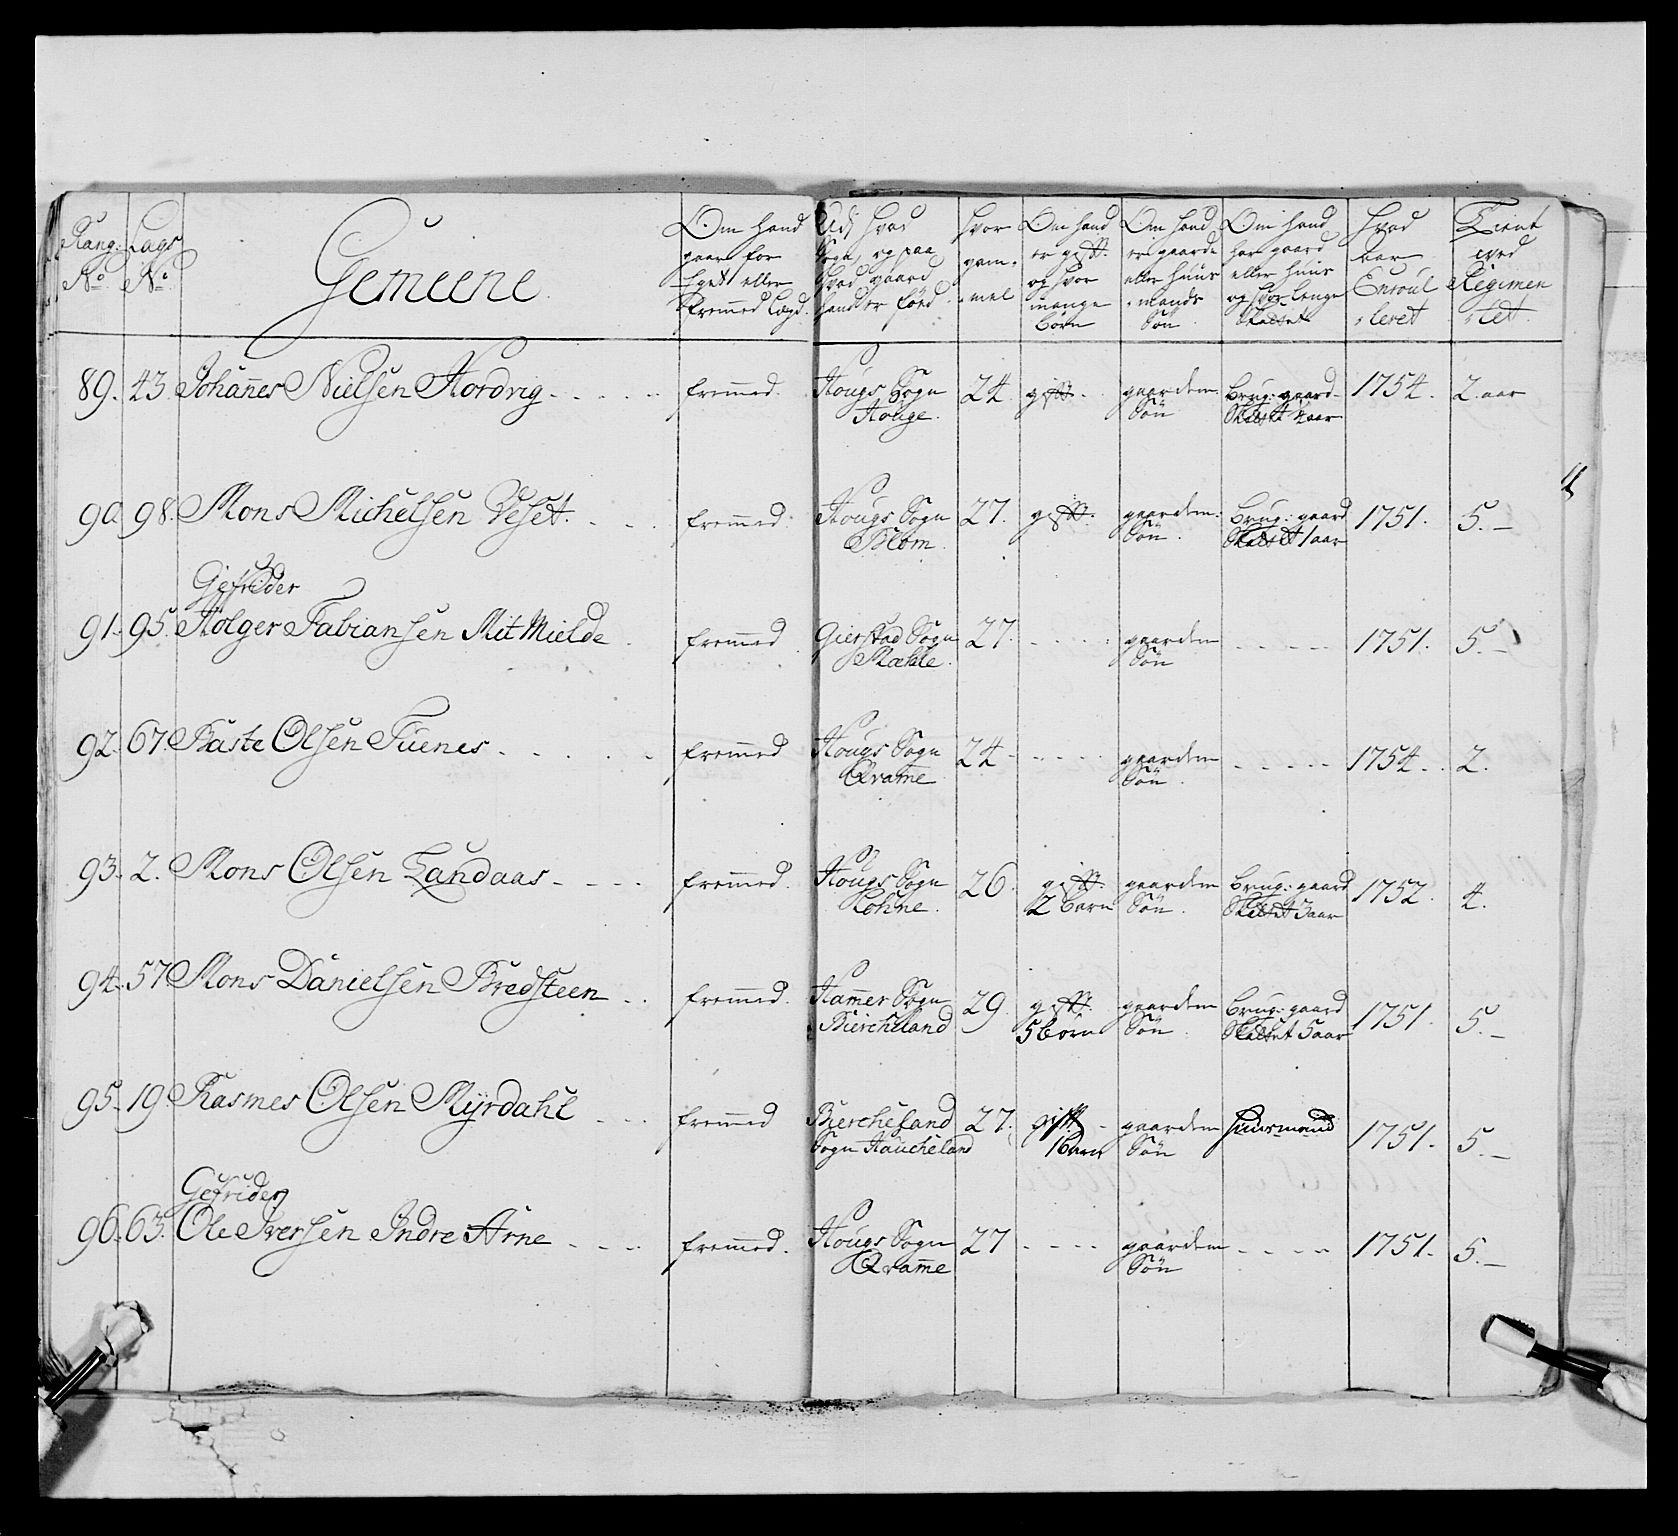 Rang: No. Lags No. Gemeene. Om Hand gaar for Eget eller fremmed Lægd. Udj hvad Sogn, og paa hvad gaard hand er föed. Hvor gam-mel Om hand er gift. og hvor mange börn Om hand er gaard- eller Huus-mands Sön Om hand har gaard eller Huus og hvor lenge Skattet Hvad aar Enroul-leret Tient ved Regimen-tet.
89. 43. Johañes Nielsen Hordvig fremmed. Hougs Sogn Houge. 24. gift. gaardem: Sön Brug: gaard Skattet 4 aar 1754. 2 aar
90. 98. Mons Michelsen Veset. fremmed. Hougs Sogn Blom. 27. gift. gaardem: Sön. Brug: gaard Skattet 1 aar 1751. 5.
Gefrider
91. 95. Holger Fabiansen Mit Mielde fremmed Gierstad Sogn Mæhle. 27. gaardem Sön 1751. 5.
92. 67. Baste Olsen Tüenes fremmed Hougs Sogn Qvame 24 gaardem Sön. 1754. 2.
93. 2. Mons Olsen Landaas fremmed. Hougs Sogn Lohne. 26. gift. 2 barn gaardem Sön. Brug: gaard Skattet 3 aar 1752. 4.
94. 57 Mons Danielsen Bredsteen fremmed. Hamer Sogn Biercheland 29. gift. 5 börn gaardem Sön. Brug: gaard Skattet 5 aar 1751. 5.
95. 19. Rasmes Olsen Myrdahl fremmed Biercheland Sogn Haucheland 27. gift 1 barn gaardem Sön Huusmand 1751. 5.
Gefrider
96. 63. Ole Iversen Indre Arne fremmed. Hougs Sogn Qvame 27 gaardem Sön 1751. 5.